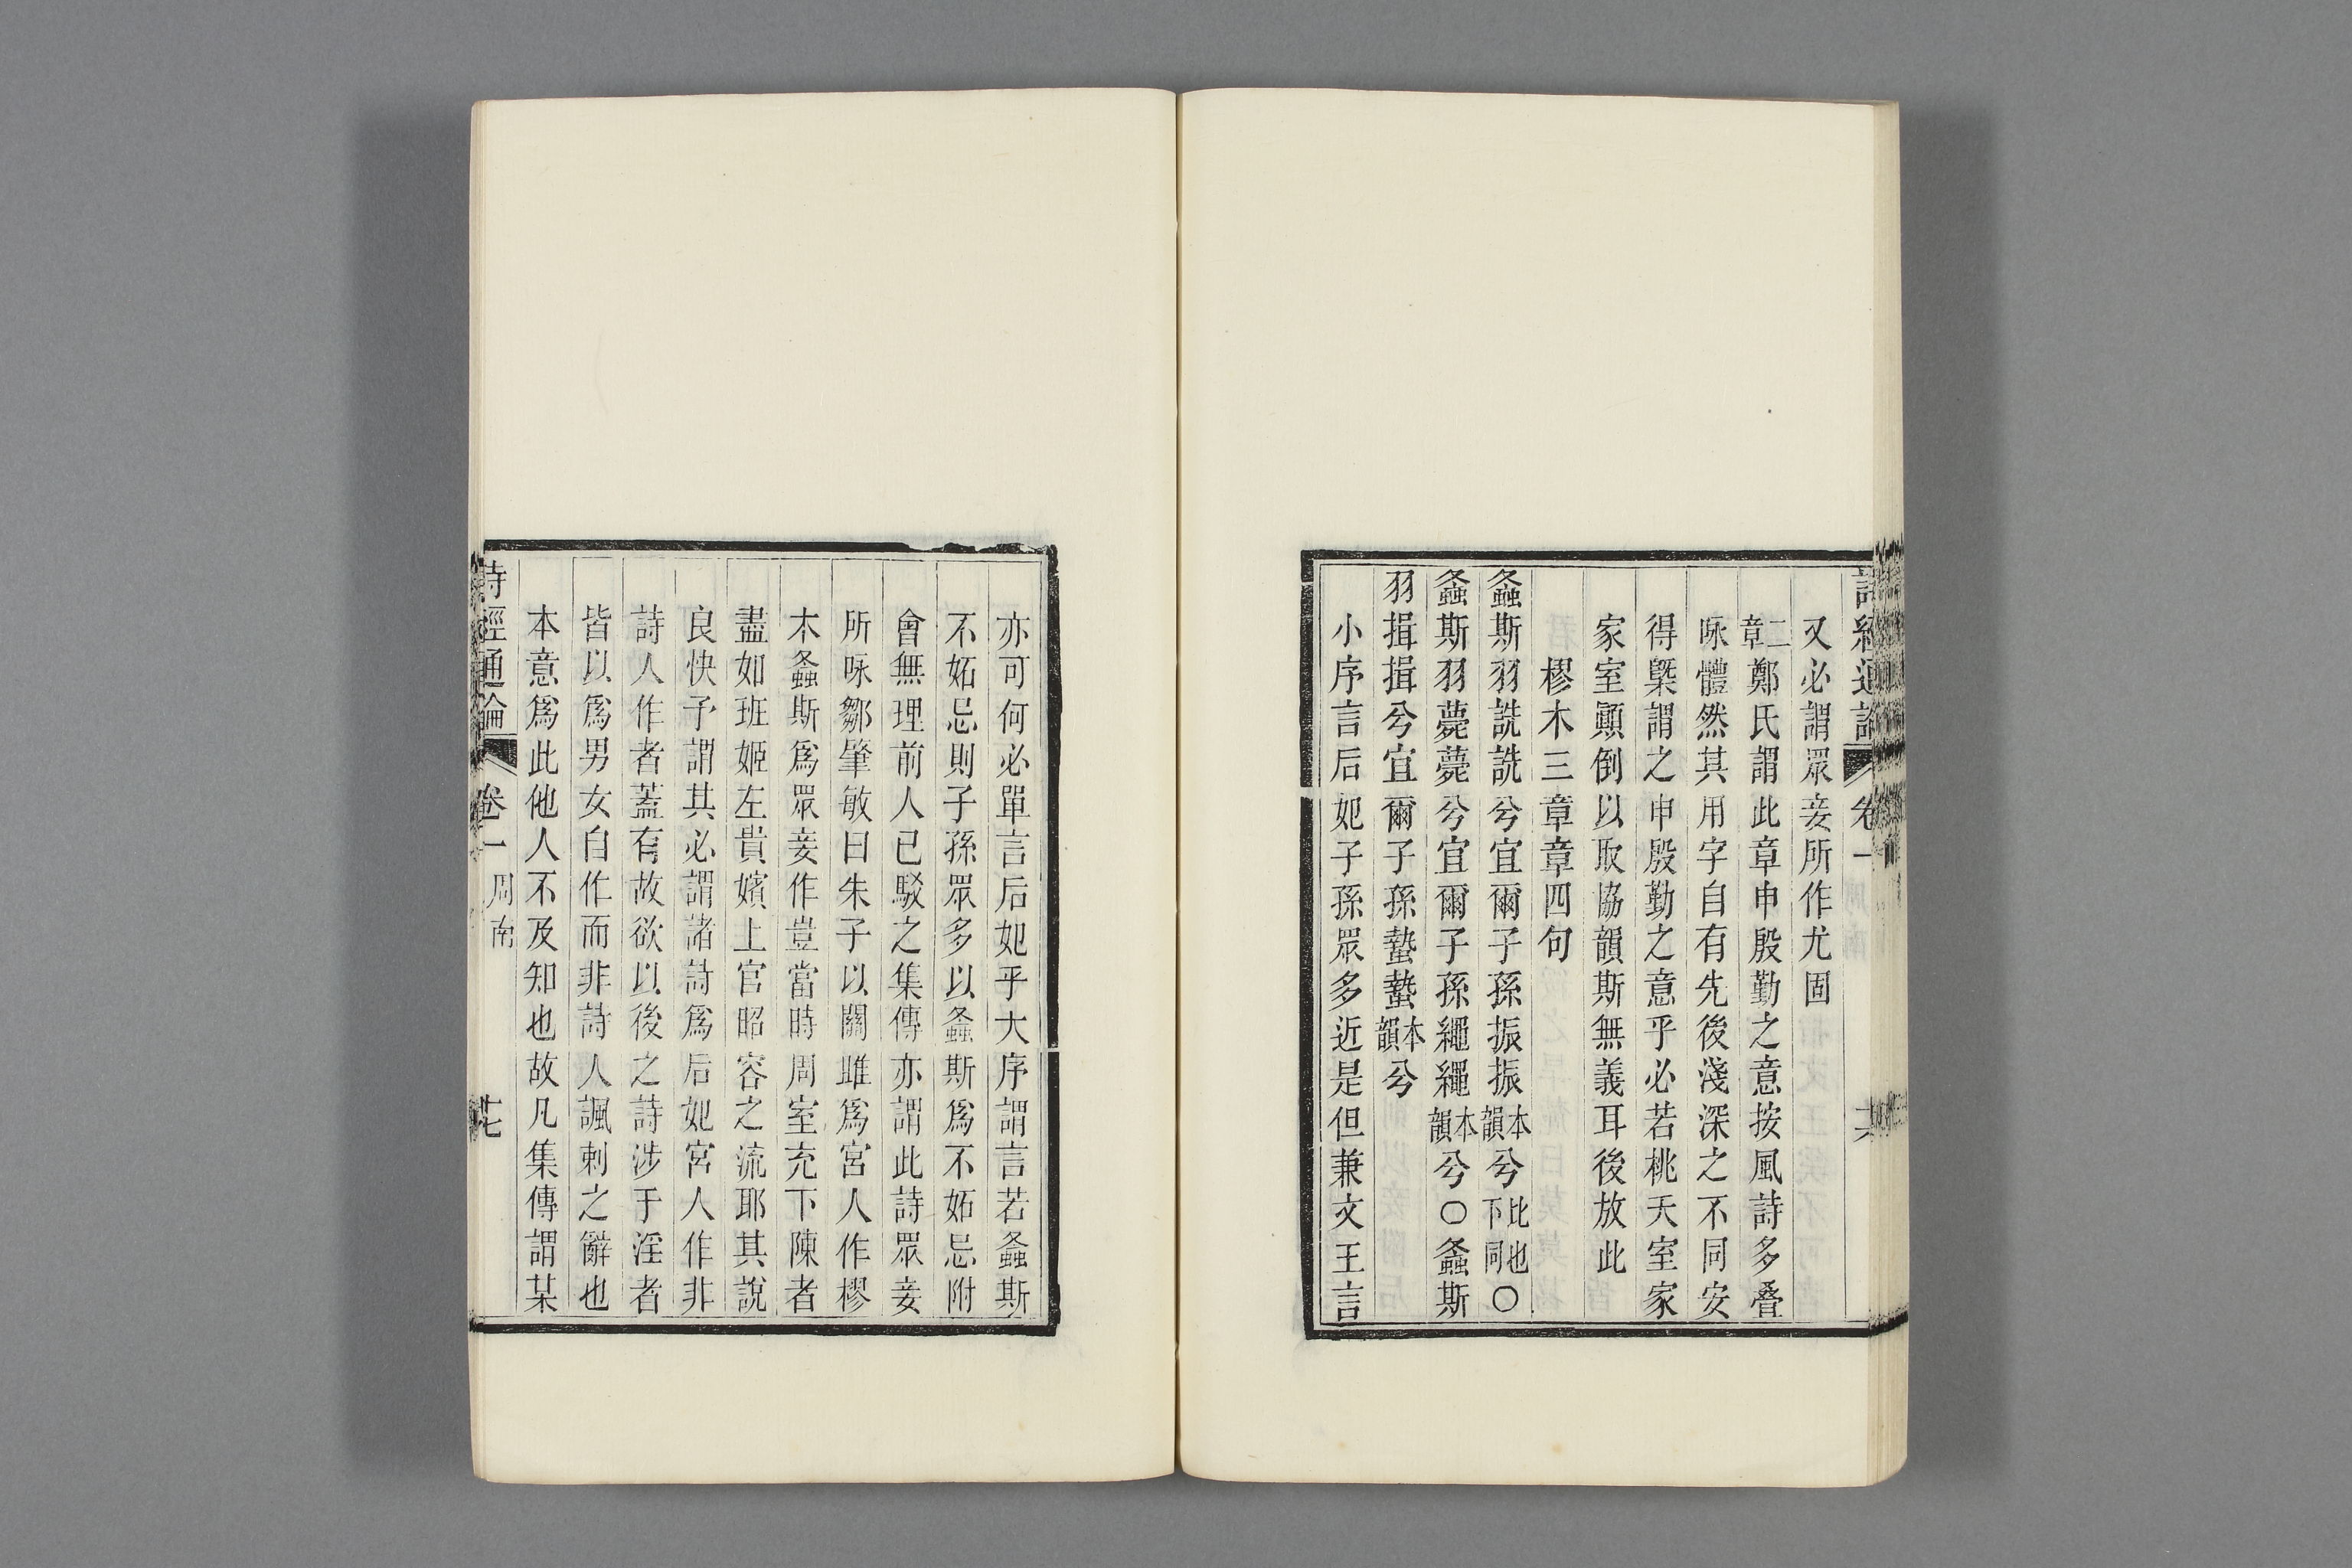 詩經通論 卷一
又必謂眾妾所作尤固
二章鄭氏謂此章申殷勤之意按風詩多疊
咏體然其用字自有先後淺深之不同安
得槩謂之申殷勤之意乎必若桃夭室家
家室顚倒以取協韻斯無義耳後放此
樛木三章章四句
螽斯羽詵詵兮宜爾子孫振振本韻兮比也下同○
螽斯羽薨薨兮宜爾子孫繩繩本韻兮○螽斯
羽揖揖兮宜爾子孫蟄蟄本韻兮
小序言后妃子孫眾多近是但兼文王言
亦可何必單言后妃乎大序謂言若螽斯
不妬忌則子孫眾多以螽斯爲不妬忌附
會無理前人已駁之集傳亦謂此詩眾妾
所咏鄒肇敏曰朱子以關雎爲宮人作樛
木螽斯爲眾妾作豈當時周室充下陳者
盡如班姬左貴嬪上官昭容之流耶其說
良快予謂其必謂諸詩爲后妃宮人作非
詩人作者蓋有故欲以後之詩涉于淫者
皆以爲男女自作而非詩人諷刺之辭也
本意爲此他人不及知也故凡集傳謂某
詩經通論 卷一 周南 十七